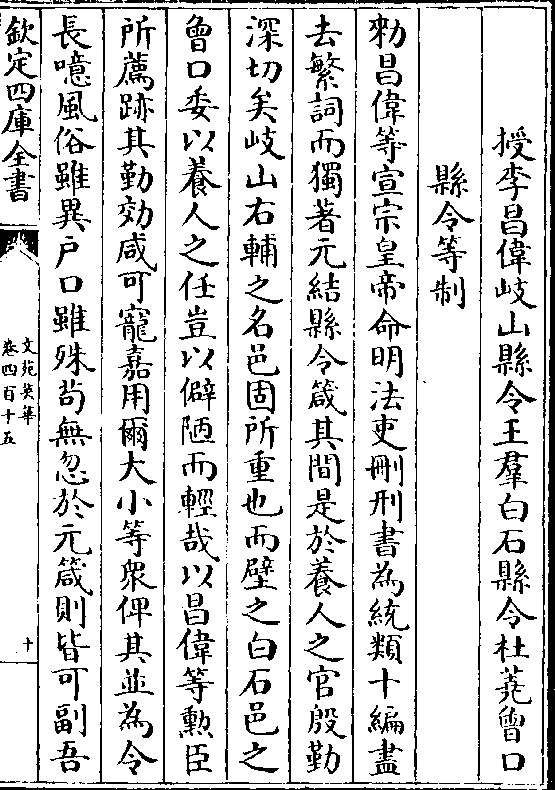 授李昌偉岐山縣令王羣白石縣令杜蕘曾口
縣令等制
勑昌偉等宣宗皇帝命明法吏刪刑書為統類十編盡
去繁詞而獨著元結縣令箴其間是於養人之官殷勤
深切矣岐山右輔之名邑固所重也而壁之白石邑之
曾口委以養人之任豈以僻陋而輕哉以昌偉等勲臣
所薦跡其勤効咸可寵嘉用爾大小等衆俾其並為令
長噫風俗雖異户口雖殊茍無忽於元箴則皆可副吾
欽定四庫全書
文苑英華
卷四百十五
十